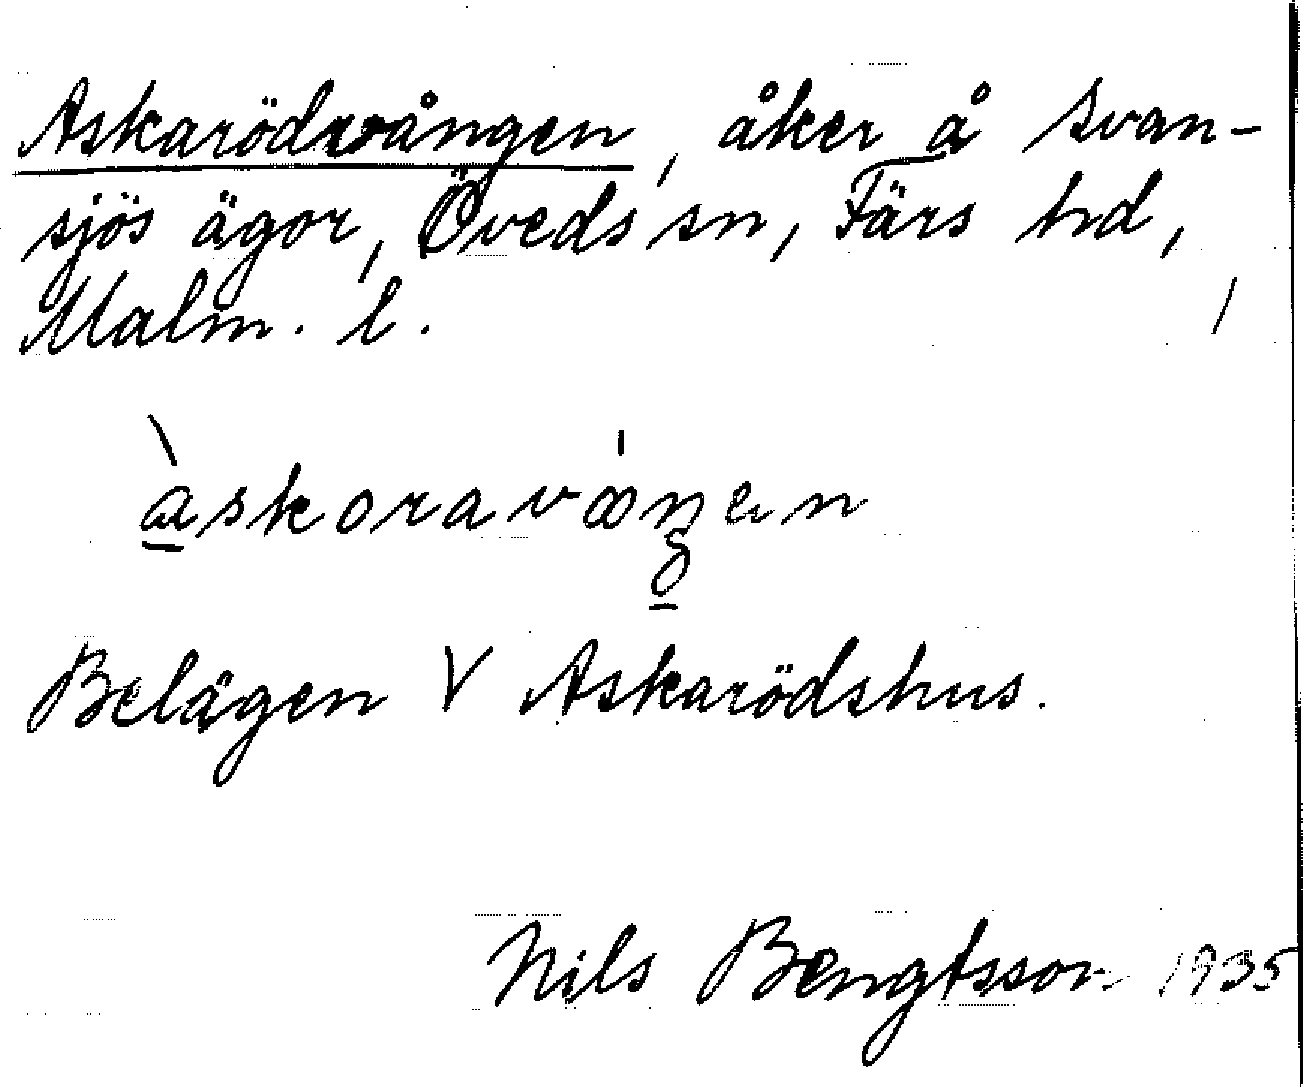 Askarödsvången, åker å Svan-
sjös ägor, Öveds sn, Färs hd,
Malm. l.
àskoravángen
Belägen V Askarödshus.
Nils Bengtsson 1935